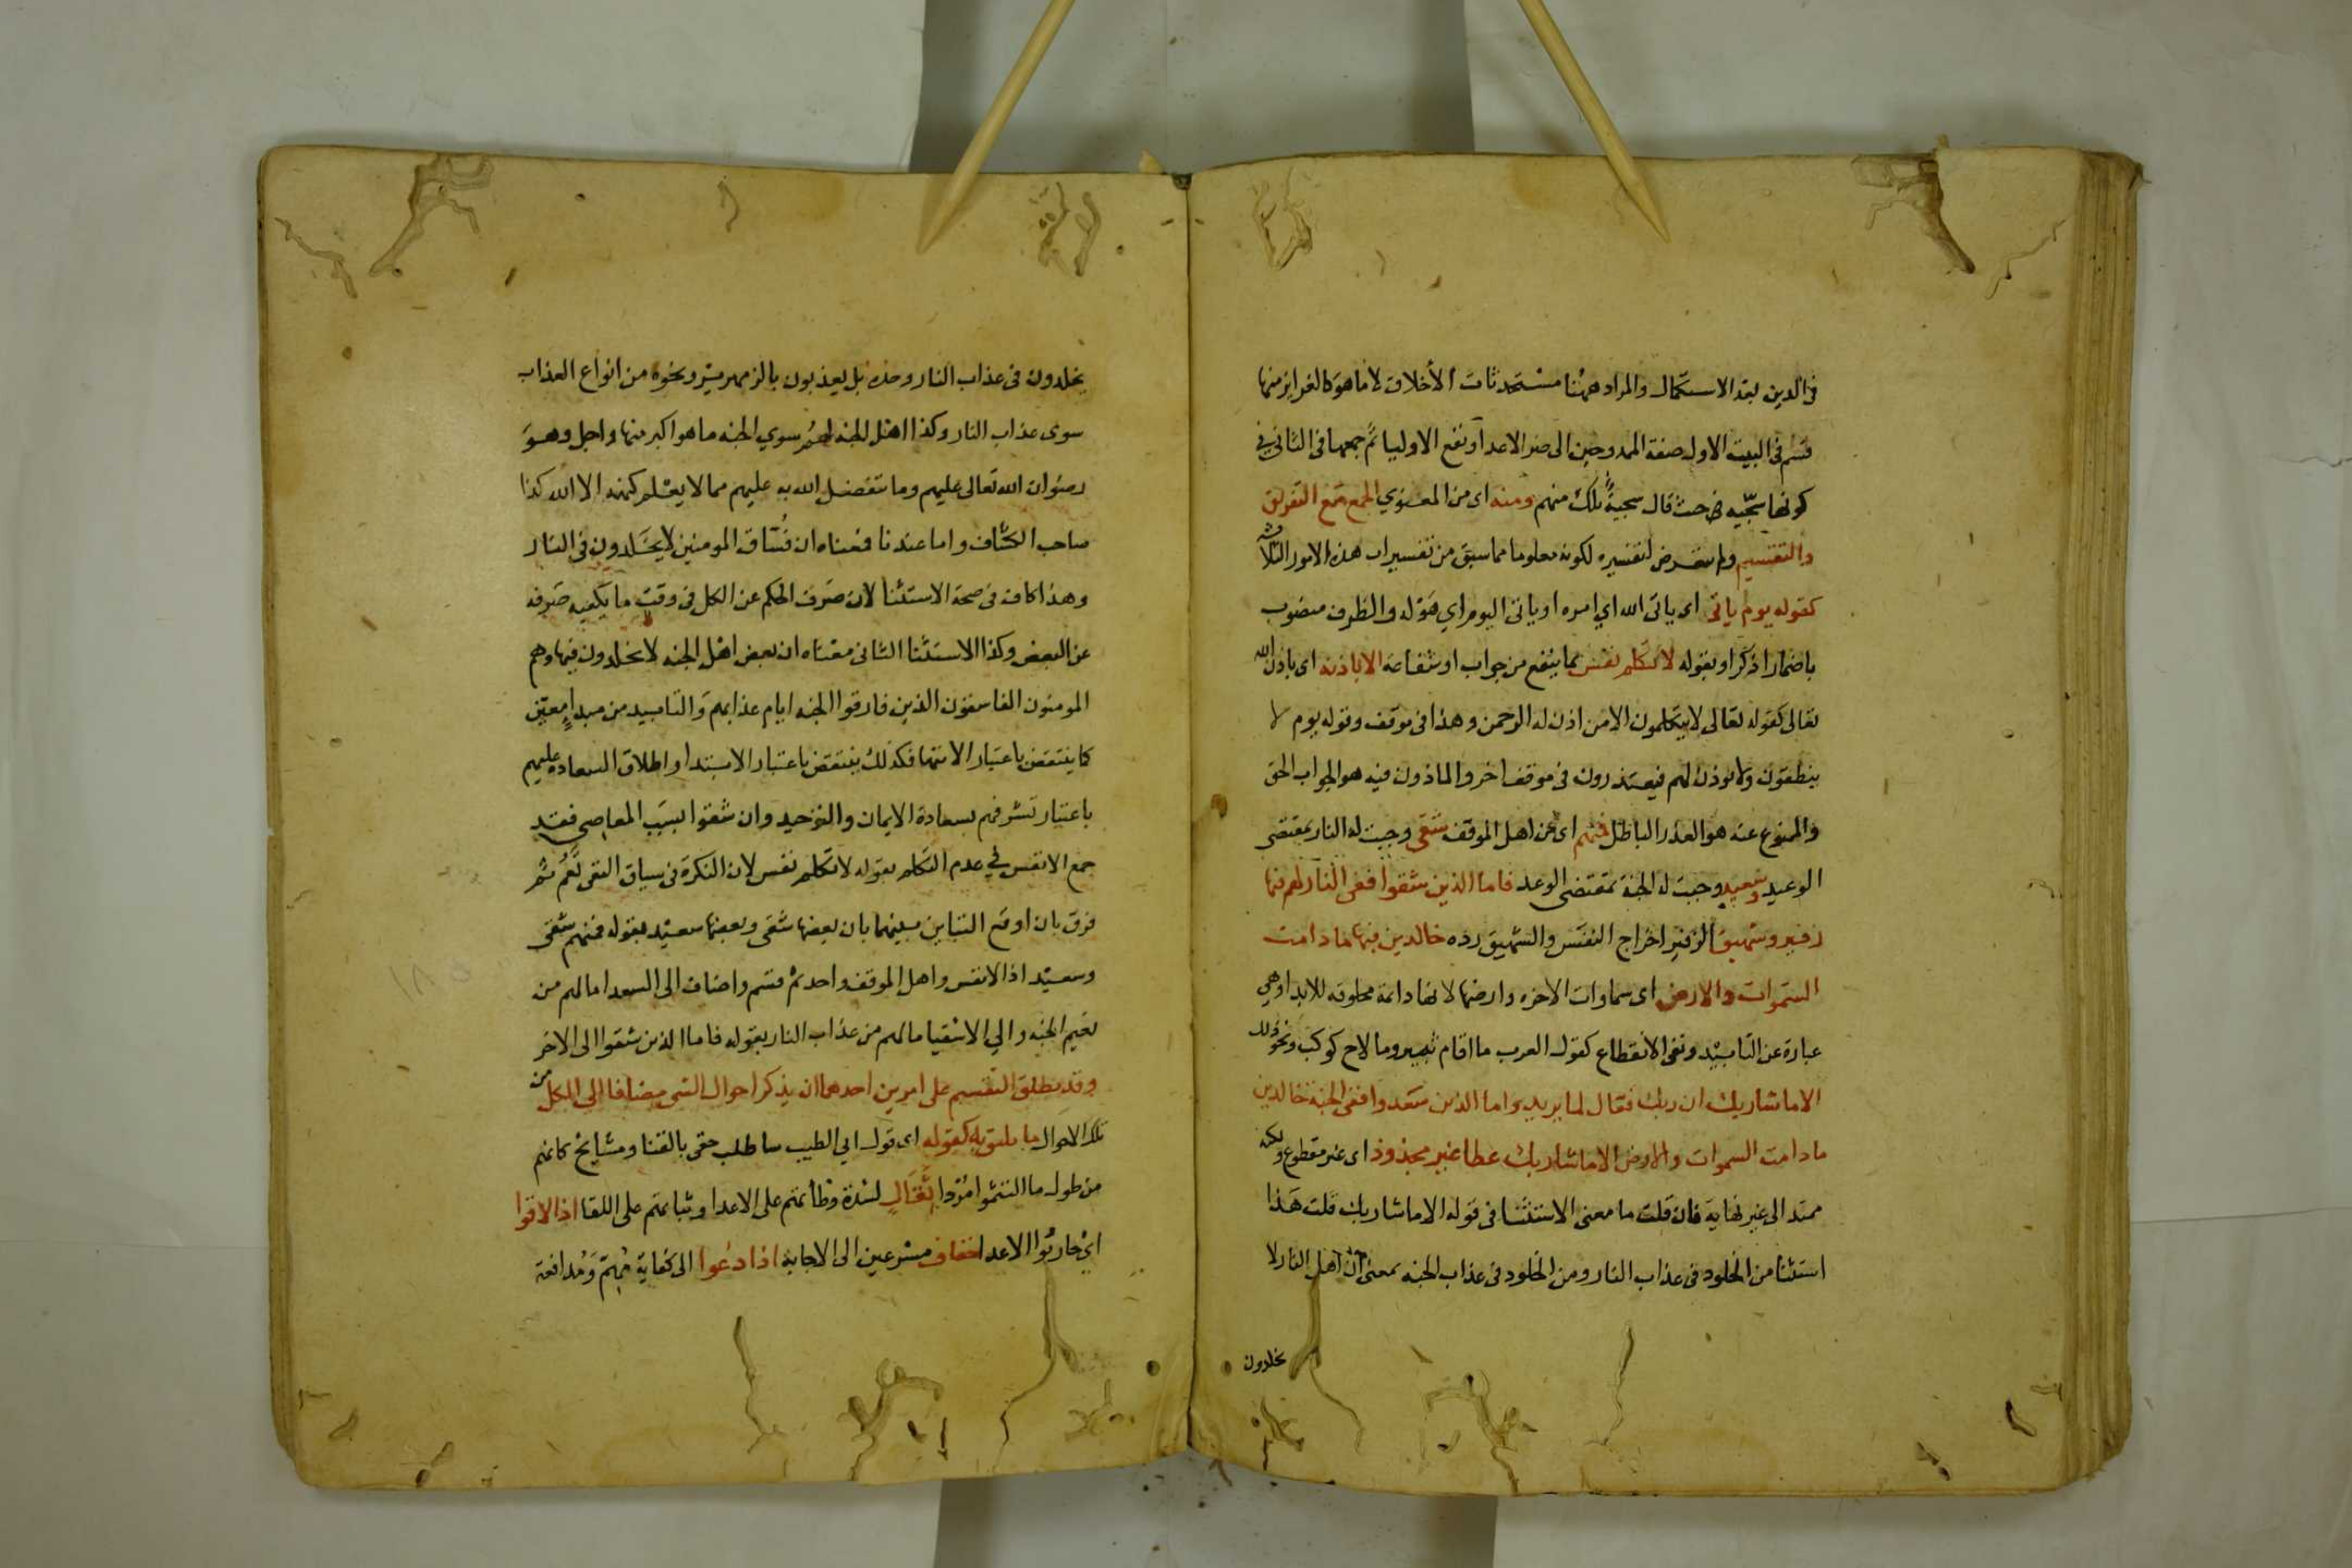 فى الدين بعد الاستكمال والمراد ههنا مستحدثات الأخلاق لا ما هو كالغرايز منها
قسم فى البيت الاول صفة الممدوحين الى ضر الاعدا ونفع الاوليا ثم جمعها فى الثانى فى
كونها سجيه حيث قال سجية تلك منهم ومنه اى من المعنوي الجمع مع التفريق
والتقسيم ولم يتعرض لتفسيره لكونه معلوما مما سبق من تفسيرات هذه الامور الثلاثة
كقوله يوم ياتى اى ياتى الله اي امره او ياتى اليوم اي هوله والظرف منصوب
باضمار اذكر او بقوله لا تكلم نفس بما ينفع من جواب او شفاعة الا باذنه اى باذن الله
تعالى كقوله تعالى لا يتكلمون الا من اذن له الرحمن وهذا فى موقف وقوله يوم لا
ينطقون ولا يوذن لهم فيعتذرون فى موقف اخر والماذون فيه هو الجواب الحق
والممنوع عنه هو العذر الباطل فمنهم اى من اهل الموقف شقى وجبت له النار بمقتضى
الوعيد وسعيد وجبت له الجنة بمقتضى الوعد فاما الذين شقوا ففى النار لهم فيها
زفير وشهيق الزفير اخراج النفس والشهيق رده خالدين فيها ما دامت
السموات والارض اى سماوات الاخره وارضها لانها دائمة مخلوقه للابد او هي
عبارة عن التابيد ونفى الانقطاع كقول العرب ما اقام ثبير وما لاح كوكب ونحو ذلك
الا ما شا ربك ان ربك فعال لما يريد واما الذين سعدوا ففى الجنة خالدين
ما دامت السموات والارض الا ما شا ربك عطا غير مجذوذ اى غير مقطوع ولكنه
ممتد الى غير نهاية فان قلت ما معنى الاستثنا فى قوله الا ما شا ربك قلت هذا
استثنا من الخلود فى عذاب النار ومن الخلود فى عذاب الجنه بمعنى ان اهل النار لا
يخلدون
يخلدون فى عذاب النار وحده بل يعذبون بالزمهرير ونحوه من انواع العذاب
سوى عذاب النار وكذا اهل الجنه لهم سوي الجنه ما هو اكبر منها واجل وهو
رضوان الله تعالى عليهم وما يتفضل الله به عليهم مما لا يعلم كنهه الا الله كذا
صاحب الكشاف واما عندنا فمعناه ان فساق المومنين لا يخلدون فى النار
وهذا كاف فى صحة الاستثنا لان صرف الحكم عن الكل فى وقت ما يكفيه صرفه
عن البعض وكذا الاستثنا الثانى معناه ان بعض اهل الجنه لا يخلدون فيها وهم
المومنون الفاسقون الذين فارقوا الجنه ايام عذابهم والتابيد من مبدا معين
كما ينتقض باعتبار الانتها فكذلك ينتقض باعتبار الابتدا واطلاق السعادة عليهم
باعتبار تشرفهم بسعادة الايمان والتوحيد وان شقوا بسبب المعاصى فقد
جمع الانفس في عدم التكلم بقوله لا تكلم نفس لان النكرة فى سياق النفى تعم ثم
فرق بان اوقع التباين بينهما بان بعضها شقى وبعضها سعيد بقوله فمنهم شقى
وسعيد اذ الانفس واهل الموقف واحد ثم قسم واضاف الى السعدا ما لهم من
نعيم الجنه والي الاشقيا ما لهم من عذاب النار بقوله فاما الذين شقوا الى الاخر
وقد يطلق التقسيم على امرين احدهما ان يذكر احوال الشى مضافا الى الكل من
تلك الاحوال ما يليق به كقوله اى قول ابي الطيب ساطلب حقى بالقنا ومشايخ كانهم
من طول ما التثموا مُرد ثقال لشدة وطأتهم على الاعدا وثباتهم على اللقا اذا لاقوا
اي حاربوا الاعدا خفاف مسرعين الى الاجابة اذا دعوا الى كفاية مهم ومدافعة